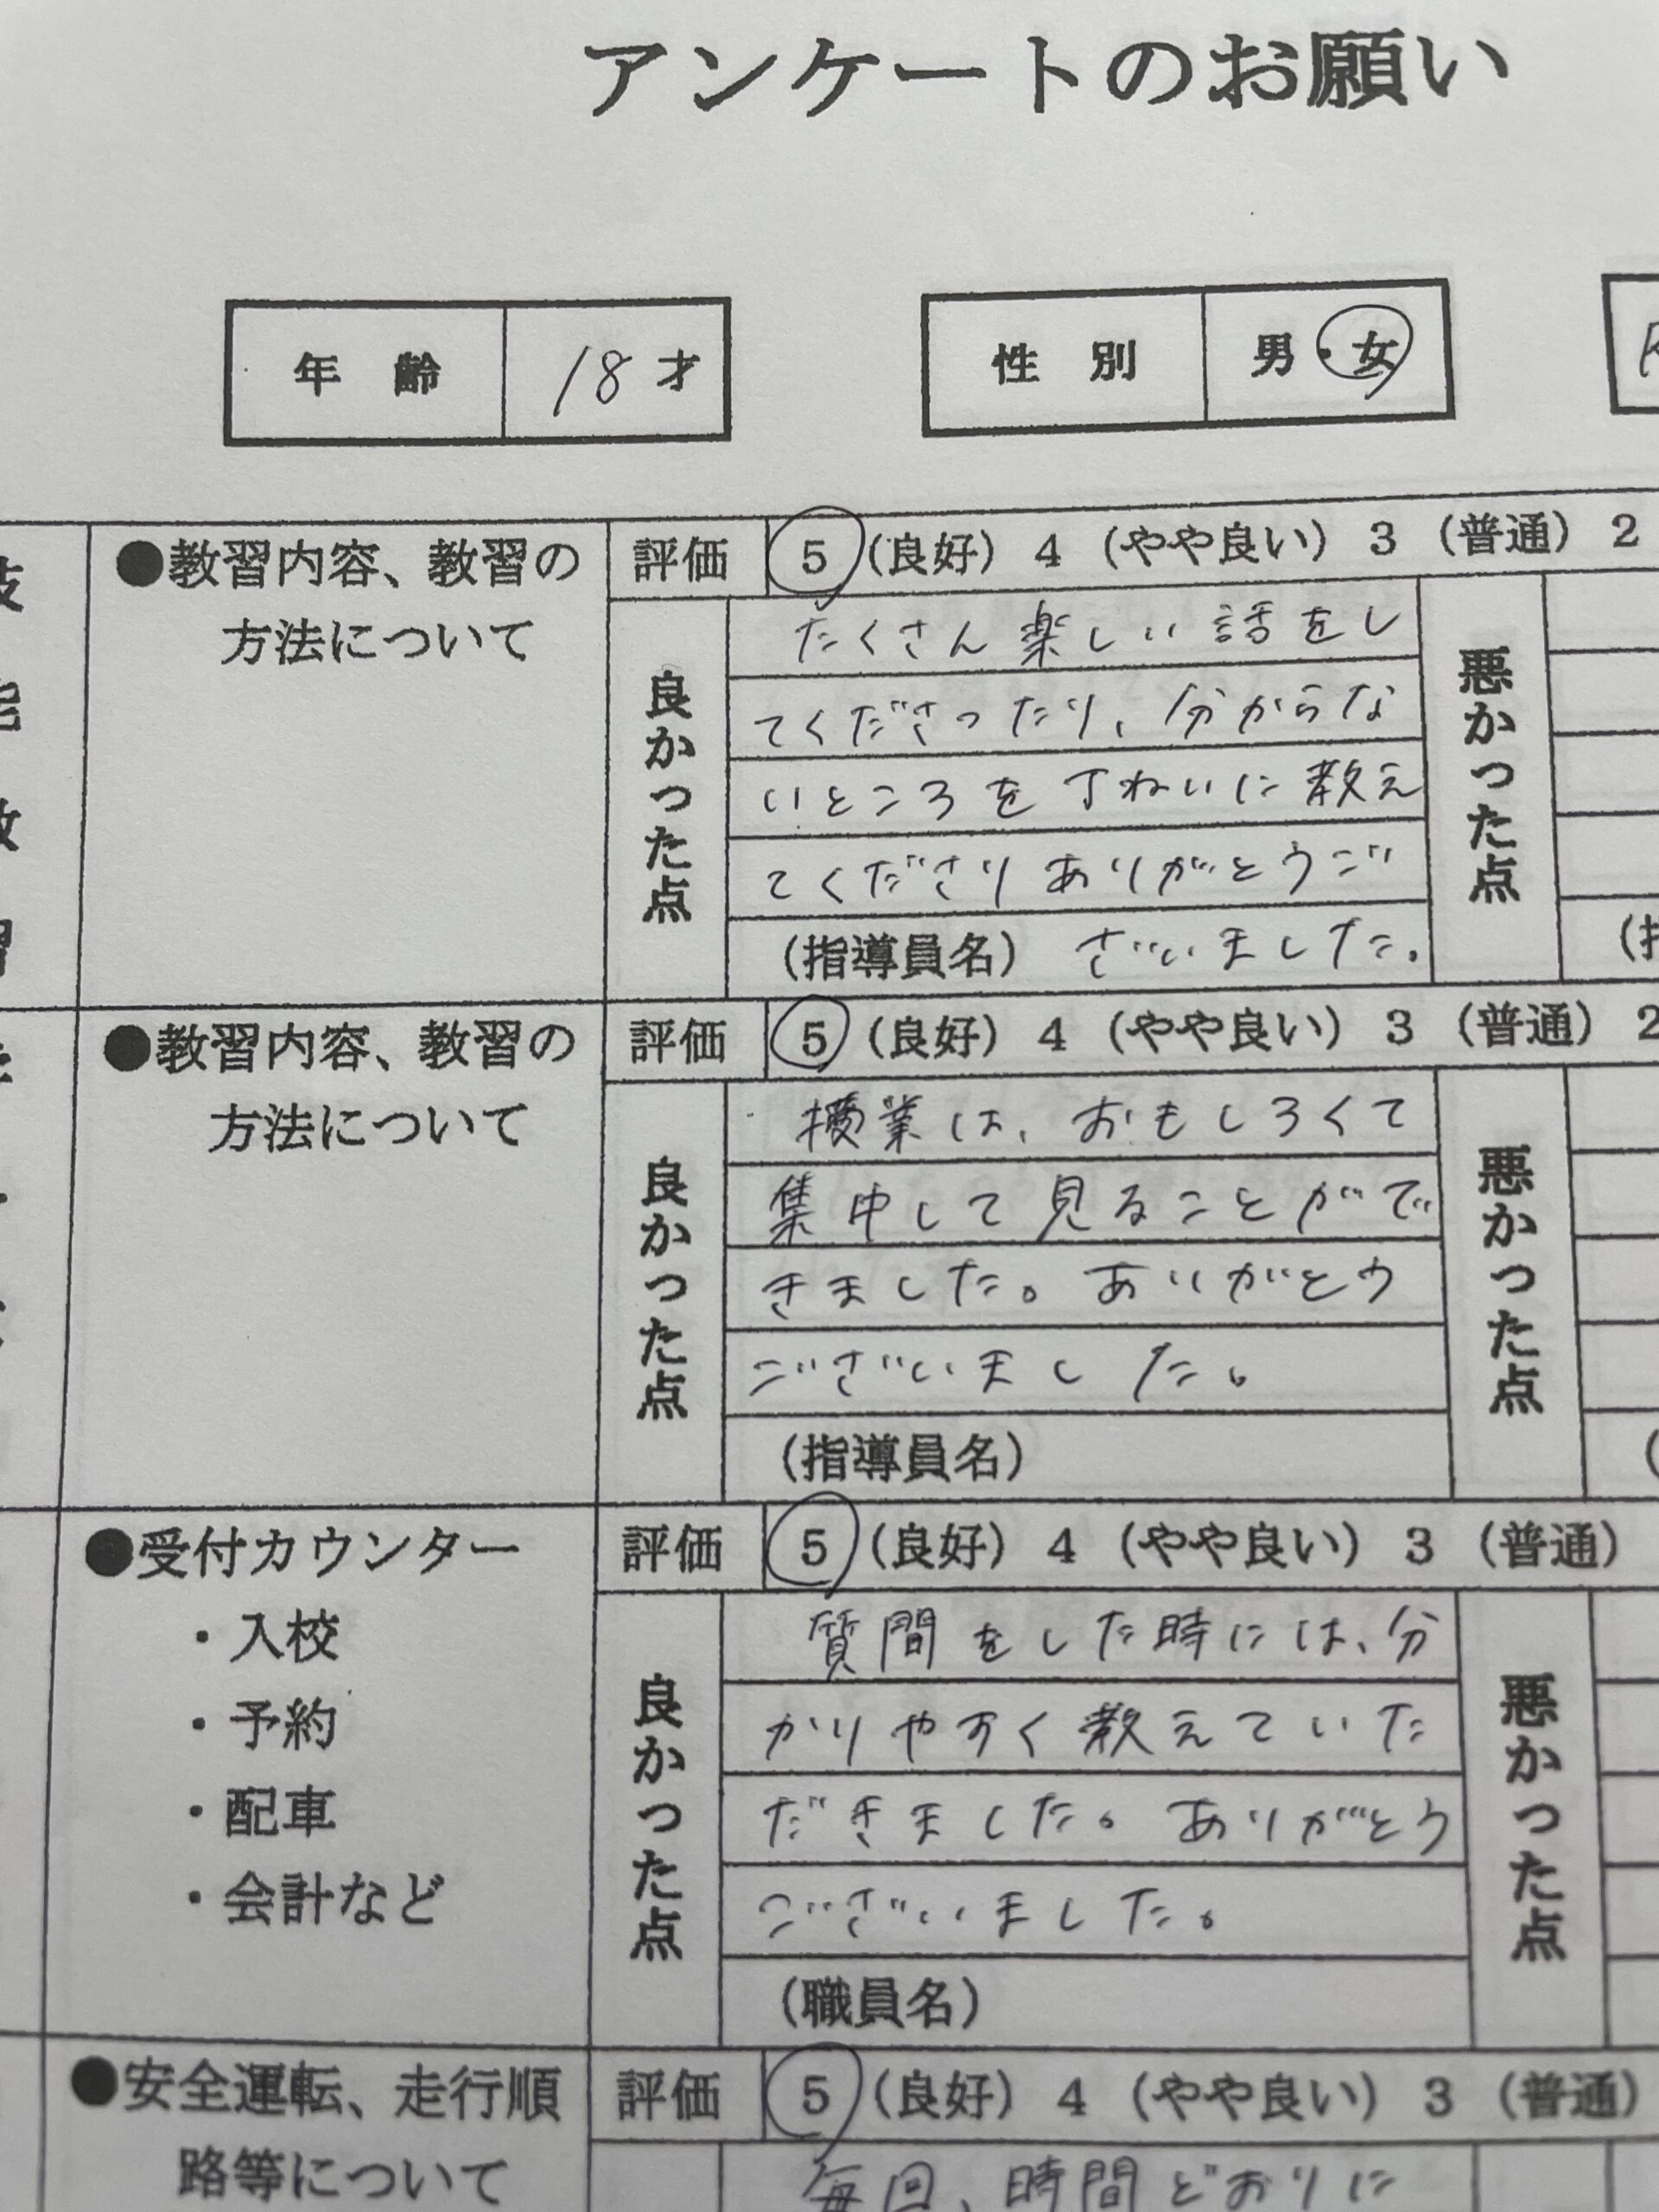 アンケートのお願い
年齢 18才
性別 男・女
●教習内容、教習の
方法について
評価 5(良好) 4(やや良い) 3(普通) 2
良かった点
たくさん楽しい話をし
てくださったり、分からな
いところを丁ねいに教え
てくださりありがとうご
(指導員名) ざいました。
悪かった点
●教習内容、教習の
方法について
評価 5(良好) 4(やや良い) 3(普通) 2
良かった点
授業は、おもしろくて
集中して見ることがで
きました。ありがとう
ございました。
(指導員名)
悪かった点
●受付カウンター
・入校
・予約
・配車
・会計など
評価 5(良好) 4(やや良い) 3(普通)
良かった点
質問をした時には、分
かりやすく教えていた
だきました。ありがとう
ございました。
(職員名)
悪かった点
●安全運転、走行順
路等について
評価 5(良好) 4(やや良い) 3(普通)
毎回、時間どおりに